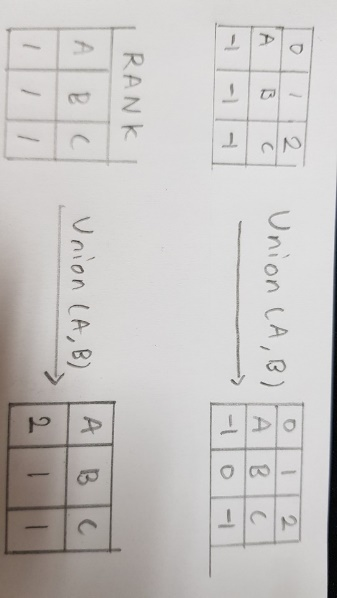 0 1 2
A B C
-1 -1 -1
Union (A,B)
0 1 2
A B C
-1 0 -1
RANK
A B C
1 1 1
Union (A,B)
A B C
2 1 1